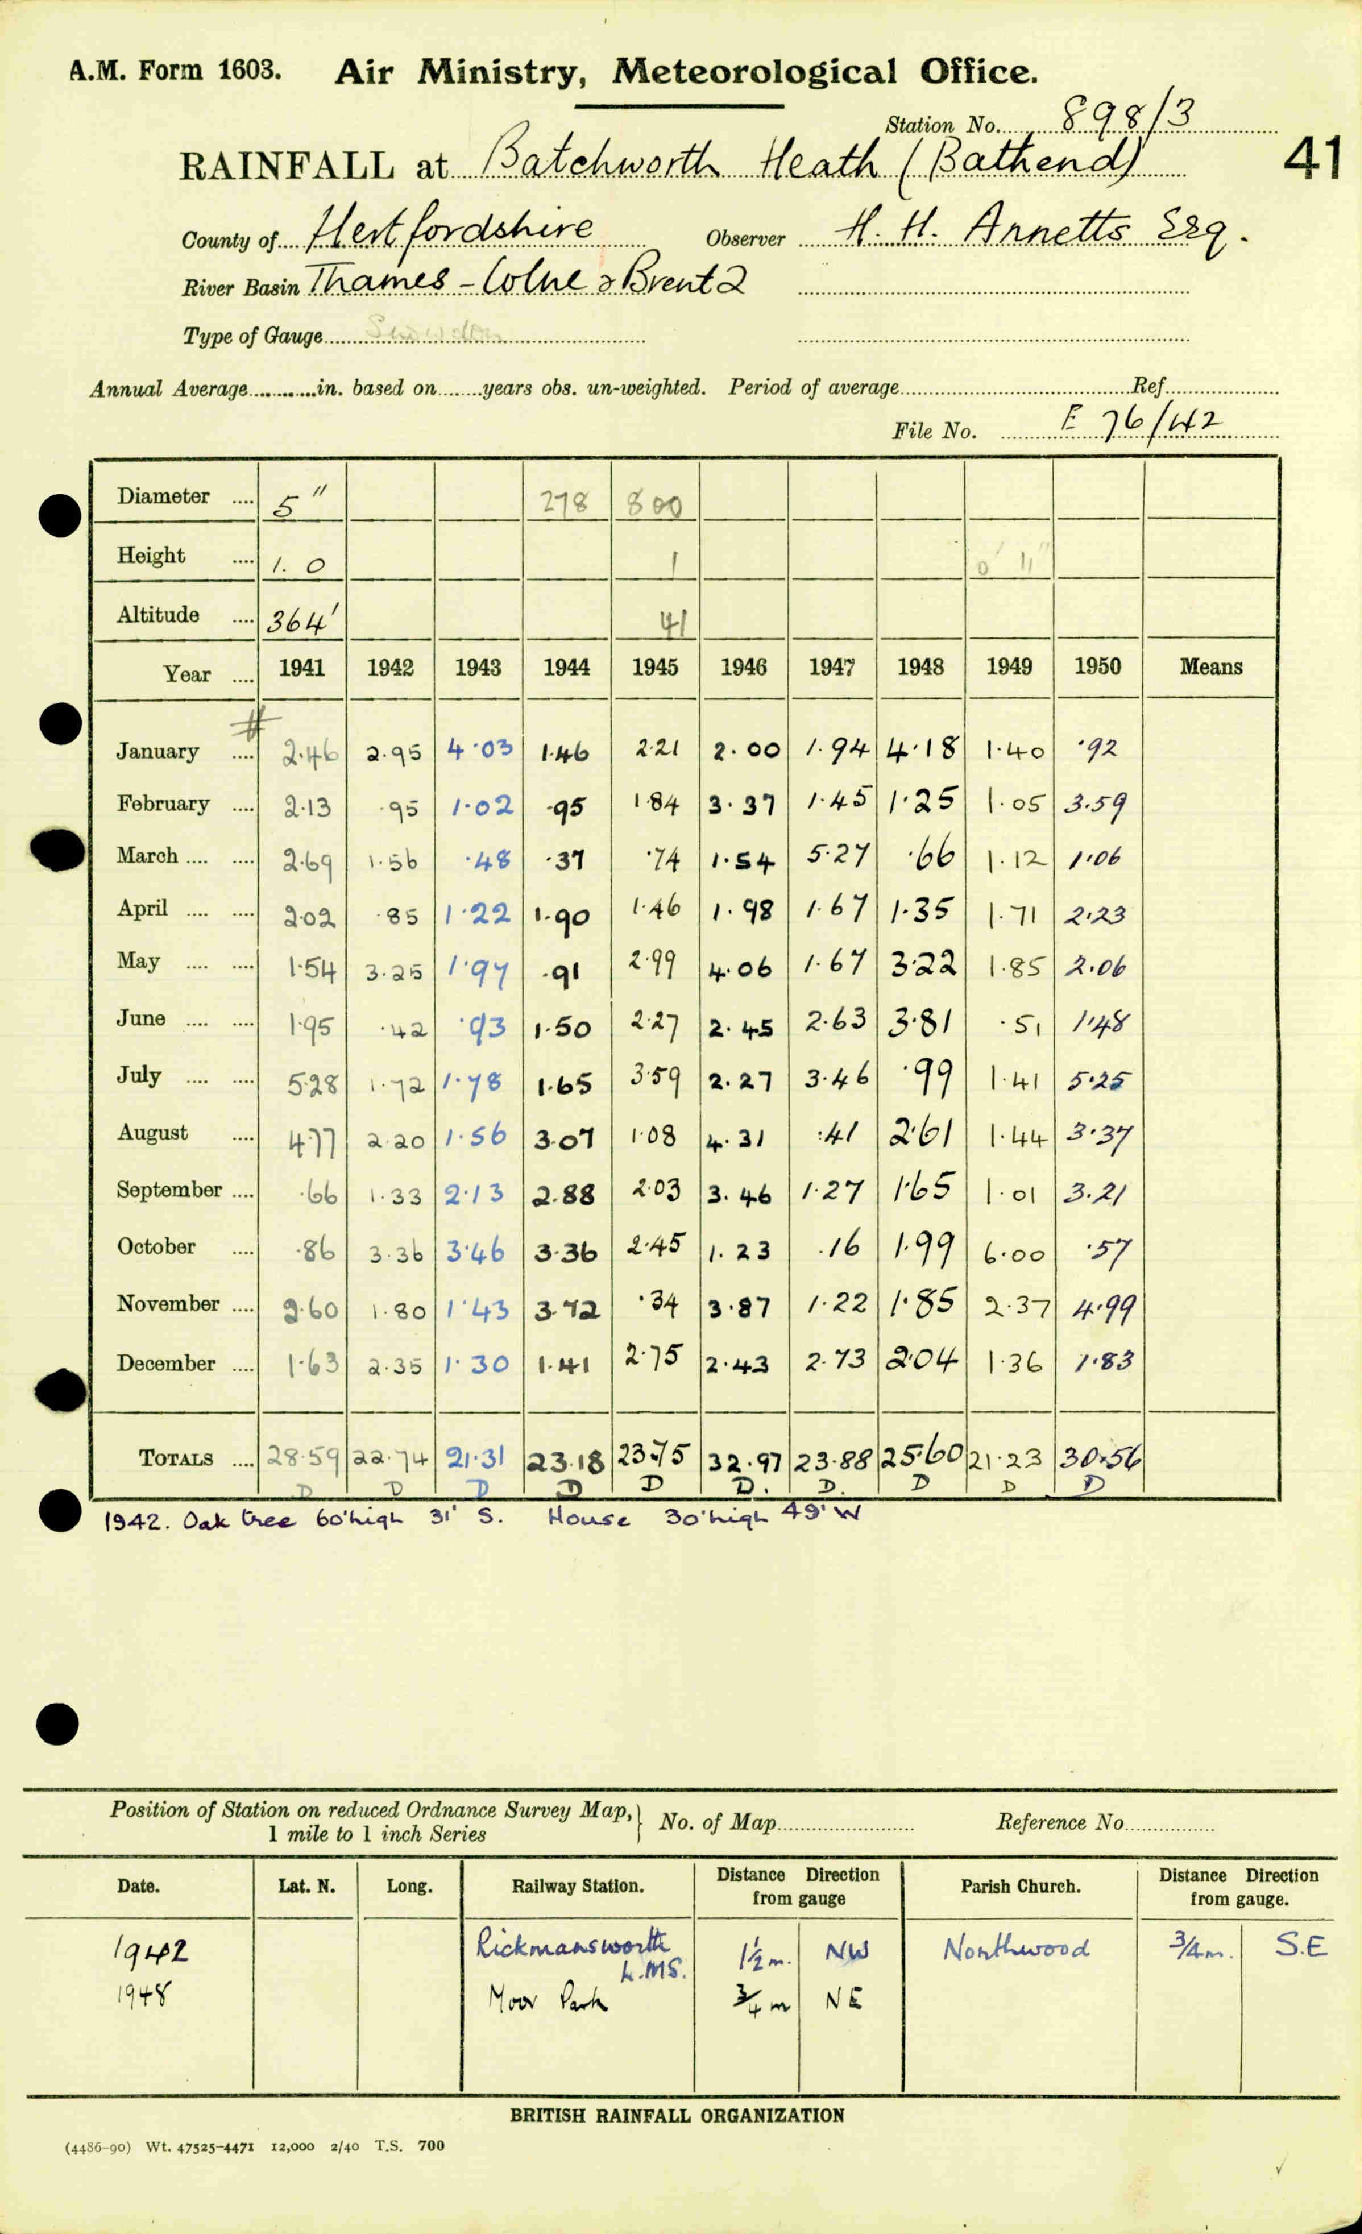 A.M. Form 1603. Air Ministry, Meteorological Office.
Station No. 898/3
RAINFALL at Batchworth Heath (Bathend)
41
County of Hertfordshire Observer H. H. Annetts Esq.
River Basin Thames - Colne & Brent 2
Type of Gauge Snowdon
Annual Average in. based on years obs. un-weighted. Period of average Ref
File No. E 76/42
Diameter .... 5" 278 800
Height .... 1. 0 1 0' 11"
Altitude .... 364' 41
Year .... 1941 1942 1943 1944 1945 1946 1947 1948 1949 1950 Means
#
January .... 2.46 2.95 4.03 1.46 2.21 2.00 1.94 4.18 1.40 .92
February .... 2.13 .95 1.02 .95 1.84 3.37 1.45 1.25 1.05 3.59
March .... .... 2.69 1.56 .48 .37 .74 1.54 5.27 .66 1.12 1.06
April .... .... 2.02 .85 1.22 1.90 1.46 1.98 1.67 1.35 1.71 2.23
May .... .... 1.54 3.25 1.97 .91 2.99 4.06 1.67 3.22 1.85 2.06
June .... .... 1.95 .42 .93 1.50 2.27 2.45 2.63 3.81 .51 1.48
July .... .... 5.28 1.72 1.78 1.65 3.59 2.27 3.46 .99 1.41 5.25
August .... 4.77 2.20 1.56 3.07 1.08 4.31 .41 2.61 1.44 3.37
September .... .66 1.33 2.13 2.88 2.03 3.46 1.27 1.65 1.01 3.21
October .... .86 3.36 3.46 3.36 2.45 1.23 .16 1.99 6.00 .57
November .... 2.60 1.80 1.43 3.72 .34 3.87 1.22 1.85 2.37 4.99
December .... 1.63 2.35 1.30 1.41 2.75 2.43 2.73 2.04 1.36 1.83
TOTALS .... 28.59 22.74 21.31 23.18 23.75 32.97 23.88 25.60 21.23 30.56
D D D D D D. D. D D D
1942. Oak tree 60' high 31' S. House 30' high 49' W
Position of Station on reduced Ordnance Survey Map, } No. of Map Reference No.
1 mile to 1 inch Series
Date. Lat. N. Long. Railway Station. Distance Direction from gauge Parish Church. Distance Direction from gauge.
1942 Rickmansworth L.M.S. 1½ m. NW Northwood ¾ m. S.E
1948 Moor Park ¾ m NE
BRITISH RAINFALL ORGANIZATION
(4486-90) Wt. 47525-4471 12,000 2/40 T.S. 700